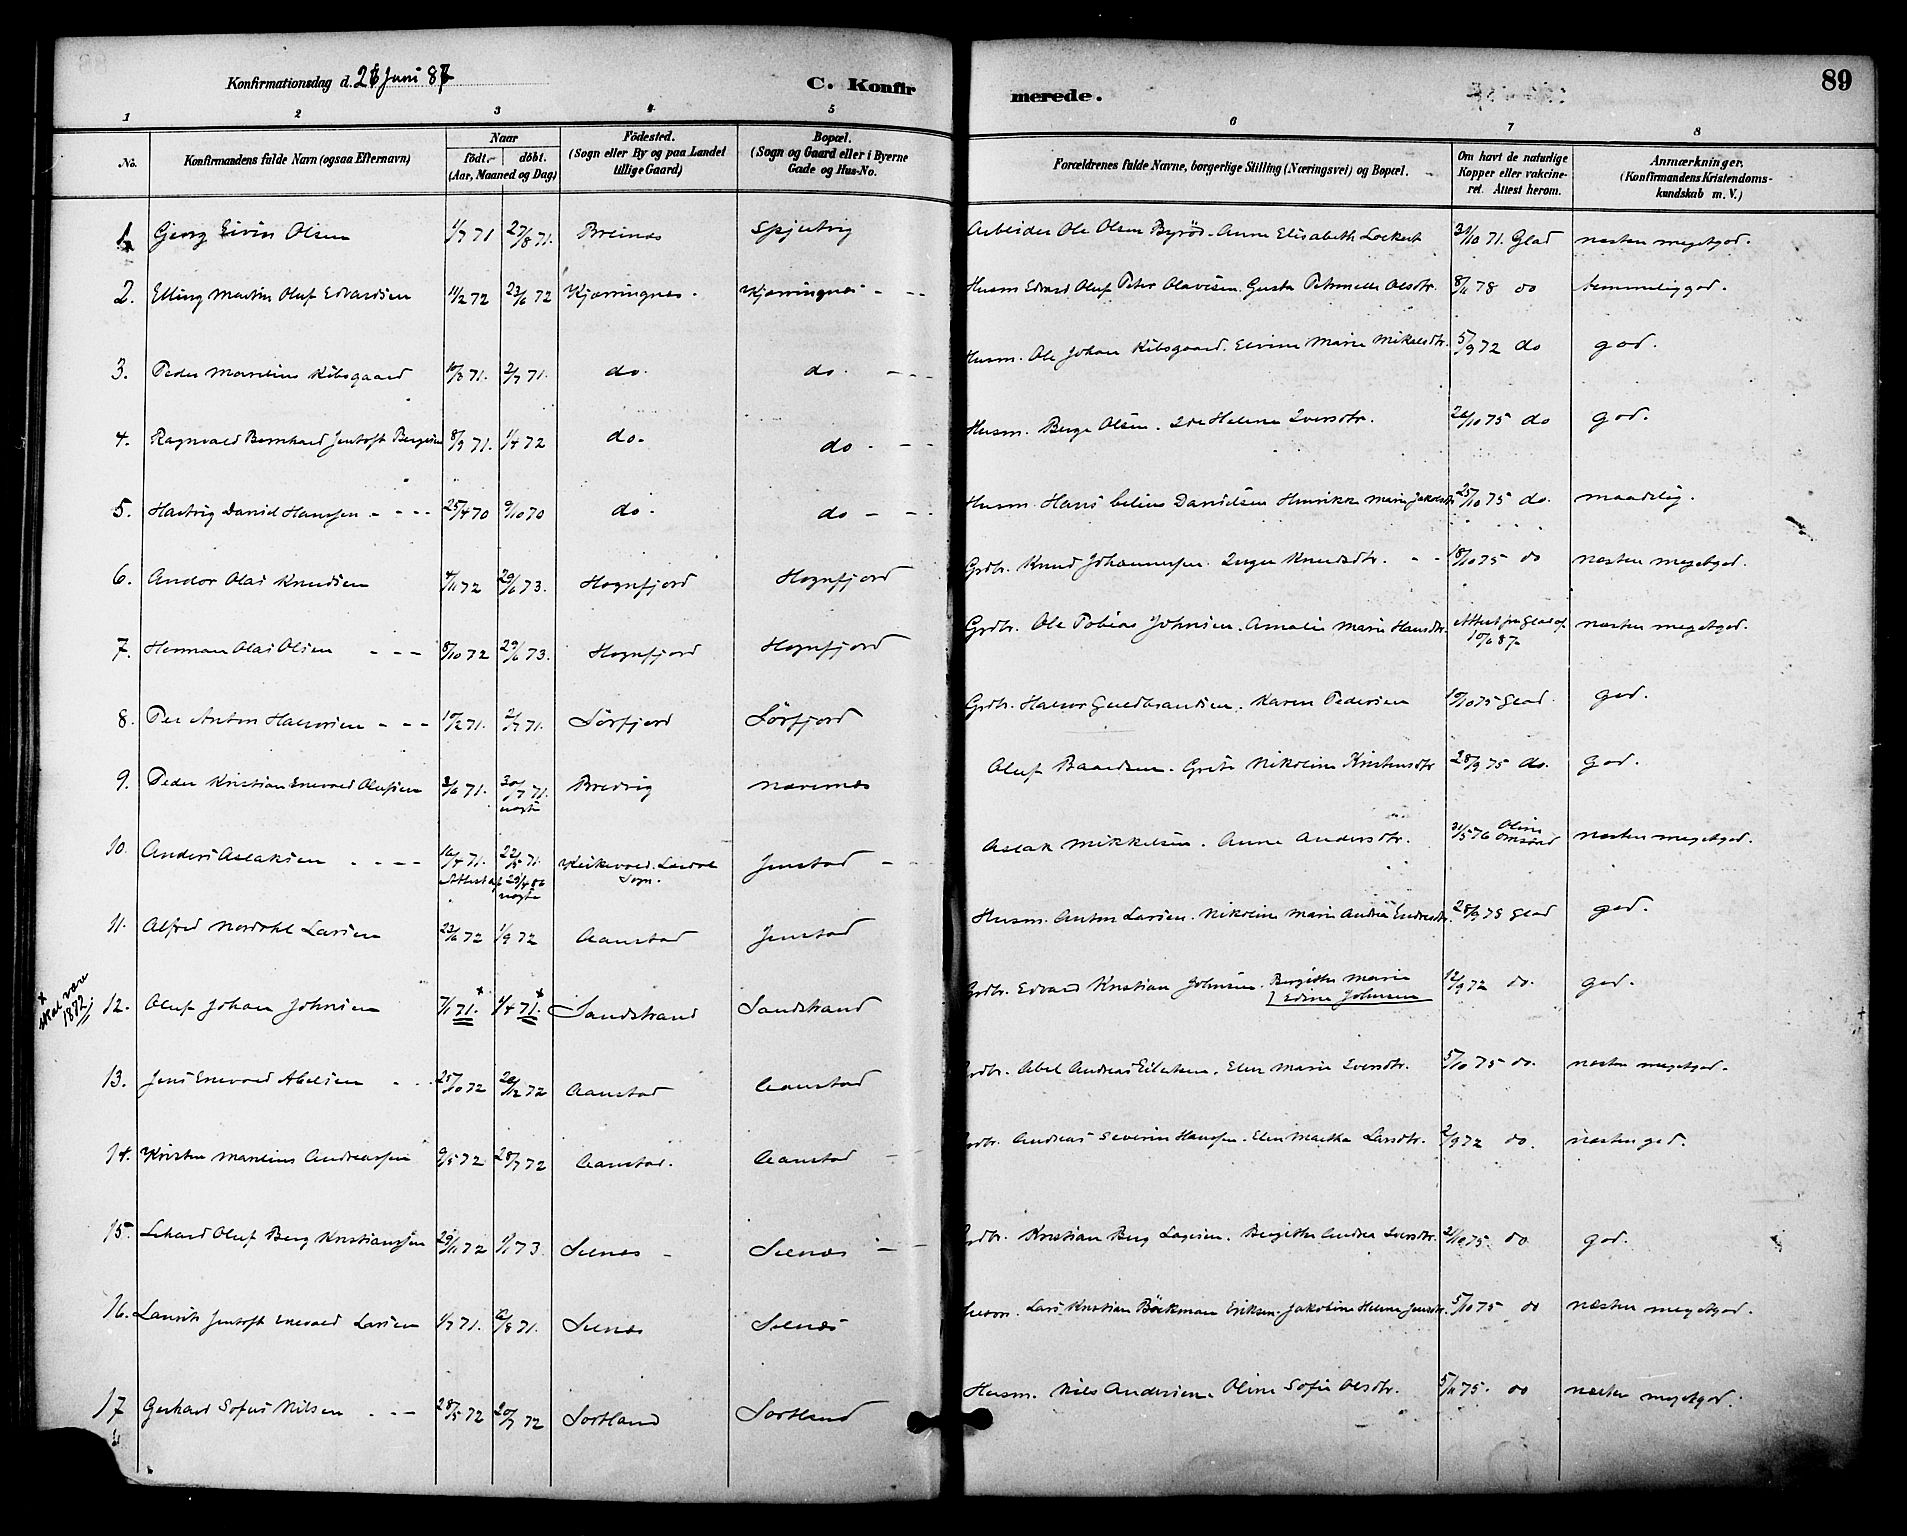 Konfirmationsdag d. 26 Juni 87
C. Konfirmerede.
89
1 2 3 4 5 6 7 8
No.
Konfirmandens fulde Navn (ogsaa Efternavn)
Naar
födt.
döbt.
(Aar, Maaned og Dag)
Födested.
(Sogn eller By og paa Landet
tillige Gaard)
Bopæl.
(Sogn og Gaard eller i Byerne
Gade og Hus-No.
Forældrenes fulde Navne, borgerlige Stilling (Næringsvei) og Bopæl.
Om havt de naturlige
Kopper eller vakcine-
ret. Attest herom.
Anmærkninger.
(Konfirmandens Kristendoms-
kundskab m. V.)
1. Gjerg Eivin Olsen 1/7 71 27/8 71. Breines Spjutvig Arbeider Ole Olsen Byrös. Anne Elisabeth Lockert 31/10 71. Glad næsten megetgod.
2. Elling Martin Oluf Edvardsen 11/2 72 23/6 72 Kjærringnes. Kjærringnes Husm Edvard Oluf Peter Olavisen. Gusta Petronelle Olsdtr. 8/11 78 do temmelig god.
3. Peder Marelius Kibsgaard 10/3 71. 2/7 71. do. do. Husm. Ole Johan Kibsgaard. Elvine Marie Mikelsdtr. 5/9 72 do god.
4. Ragnvald Bernhard Jentoft Bergesen 8/9 71. 1/4 72 do. do. Husm. Berge Olsen. Ide Helene Iversdtr. 26/10 75 do god.
5. Hartvig Daniel Hanssen 25/4 70 9/10 70 do. do Husm. Hans Celius Danielsen Henrikke Marie Jakobsdtr 25/10 75 do. maadelig.
6. Andor Olai Knudsen 4/11 72 29/6 73. Hognfjord Hognfjord Grdbr. Knud Johannessen. Inger Knudsdtr. 18/10 75 do næsten megetgod.
7. Herman Olai Olsen 8/10 72 29/6 73. Hognfjord Hognfjord Grdbr. Ole Tobias Johnsen. Amalie Marie Hansdtr. Attest fra Glad af 10/6 87. næsten megetgod.
8. Per Anton Halvorsen 10/2 71. 2/7 71. Sörfjord Sörfjord Grdbr. Halvor Guldbrandsen. Karen Pedersen 10/10 75 Glad. god.
9. Peder Kristian Enevold Olufsen 3/6 71. 30/7 71. Bredvig Oluf Baardsen. Grete Nikoline Kristensdtr 28/9 75 do. god.
10. Anders Aslaksen 16/4 71. 22/5 71. Sogn. Jenstad Aslak Mikkelsen. Anne Andersdtr. 31/5 76 Oline næsten megetgod.
11. Alfred Nordahl Larsen 23/6 72 1/9 72 Aanstad Jenstad Husm. Anton Larsen. Nikoline Marie Andrea Endresdtr. 28/9 78 Glad god.
+ skal være 1872
12. Oluf Johan Johnsen 7/1 71.+ 1/4 71.+ Sandstrand Sandstrand Grdbr. Edvard Kristian Johnsen. Bergitte Marie Edine Johnsen 12/9 72 do. god.
13. Jens Enevold Abelsen 25/10 72 26/12 72 Aanstad Aanstad Grdbr. Abel Andreas Eilertsen. Elen Marie Iversdtr. 5/10 75 do. næsten megetgod.
14. Kristen Marelius Andreassen 9/5 72 28/7 72 Aanstad. Aanstad Grdbr. Andreas Severin Hanssen. Elen Martha Larsdtr. 2/9 72 do. næsten god.
15. Oluf Berg Kristianssen 29/11 72 1/1 73. Selnes Selnes Grdbr. Kristian Berg Lagesen. Bergitte Andrea Iversdtr. 21/10 75. do god.
16. Laurits Jentoft Enevold Larsen 1/7 71. 6/8 71. Selnes Selnes Husm. Lars Kristian Böckman Eriksen. Jakobine Helene Jensdtr. 5/10 75 do næsten megetgod.
17 Gerhard Sofus Nilsen 28/5 72 20/7 72 Sortland Sortland Husm. Nils Andersen. Oline Sofie Olsdtr. 5/11 75. do næsten megetgod.